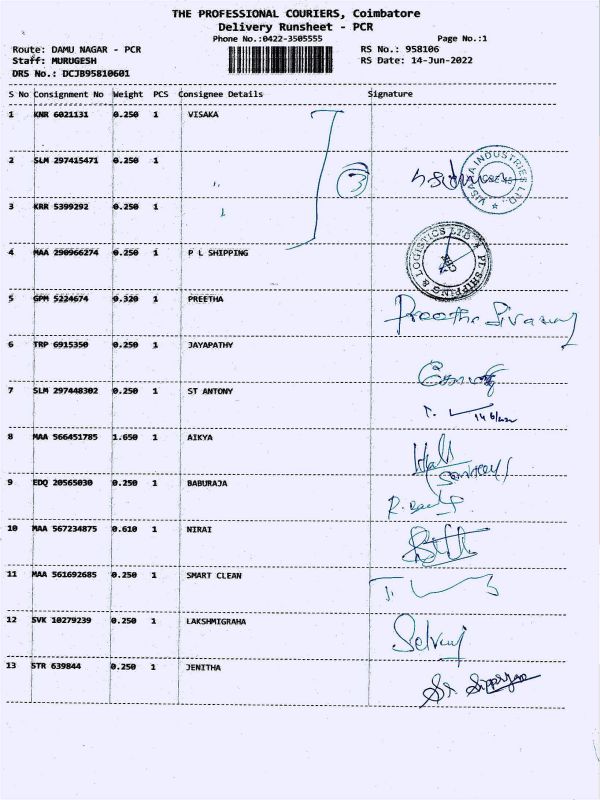 THE PROFESSIONAL COURIERS, Coimbatore
Delivery Runsheet - PCR
Phone No.:0422-3505555
Page No.:1
Route: DAMU NAGAR - PCR
RS No.: 958106
Staff: MURUGESH
RS Date: 14-Jun-2022
DRS No.: DCJB95810601
S No Consignment No Weight PCS Consignee Details Signature
1 KNR 6021131 0.250 1 VISAKA
2 SLM 297415471 0.250 1 ,,
3
VISAKA INDUSTRIES LTD.,
3 KRR 5399292 0.250 1
4 MAA 290966274 0.250 1 P L SHIPPING
PL SHIPPING & LOGISTICS LTD
5 GPM 5224674 0.320 1 PREETHA
Preetha
6 TRP 6915350 0.250 1 JAYAPATHY
7 SLM 297448302 0.250 1 ST ANTONY
8 MAA 566451785 1.650 1 AIKYA
9 EDQ 20565030 0.250 1 BABURAJA
10 MAA 567234875 0.610 1 NIRAI
11 MAA 561692685 0.250 1 SMART CLEAN
12 SVK 10279239 0.250 1 LAKSHMIGRAHA
Selvaj
13 STR 639844 0.250 1 JENITHA